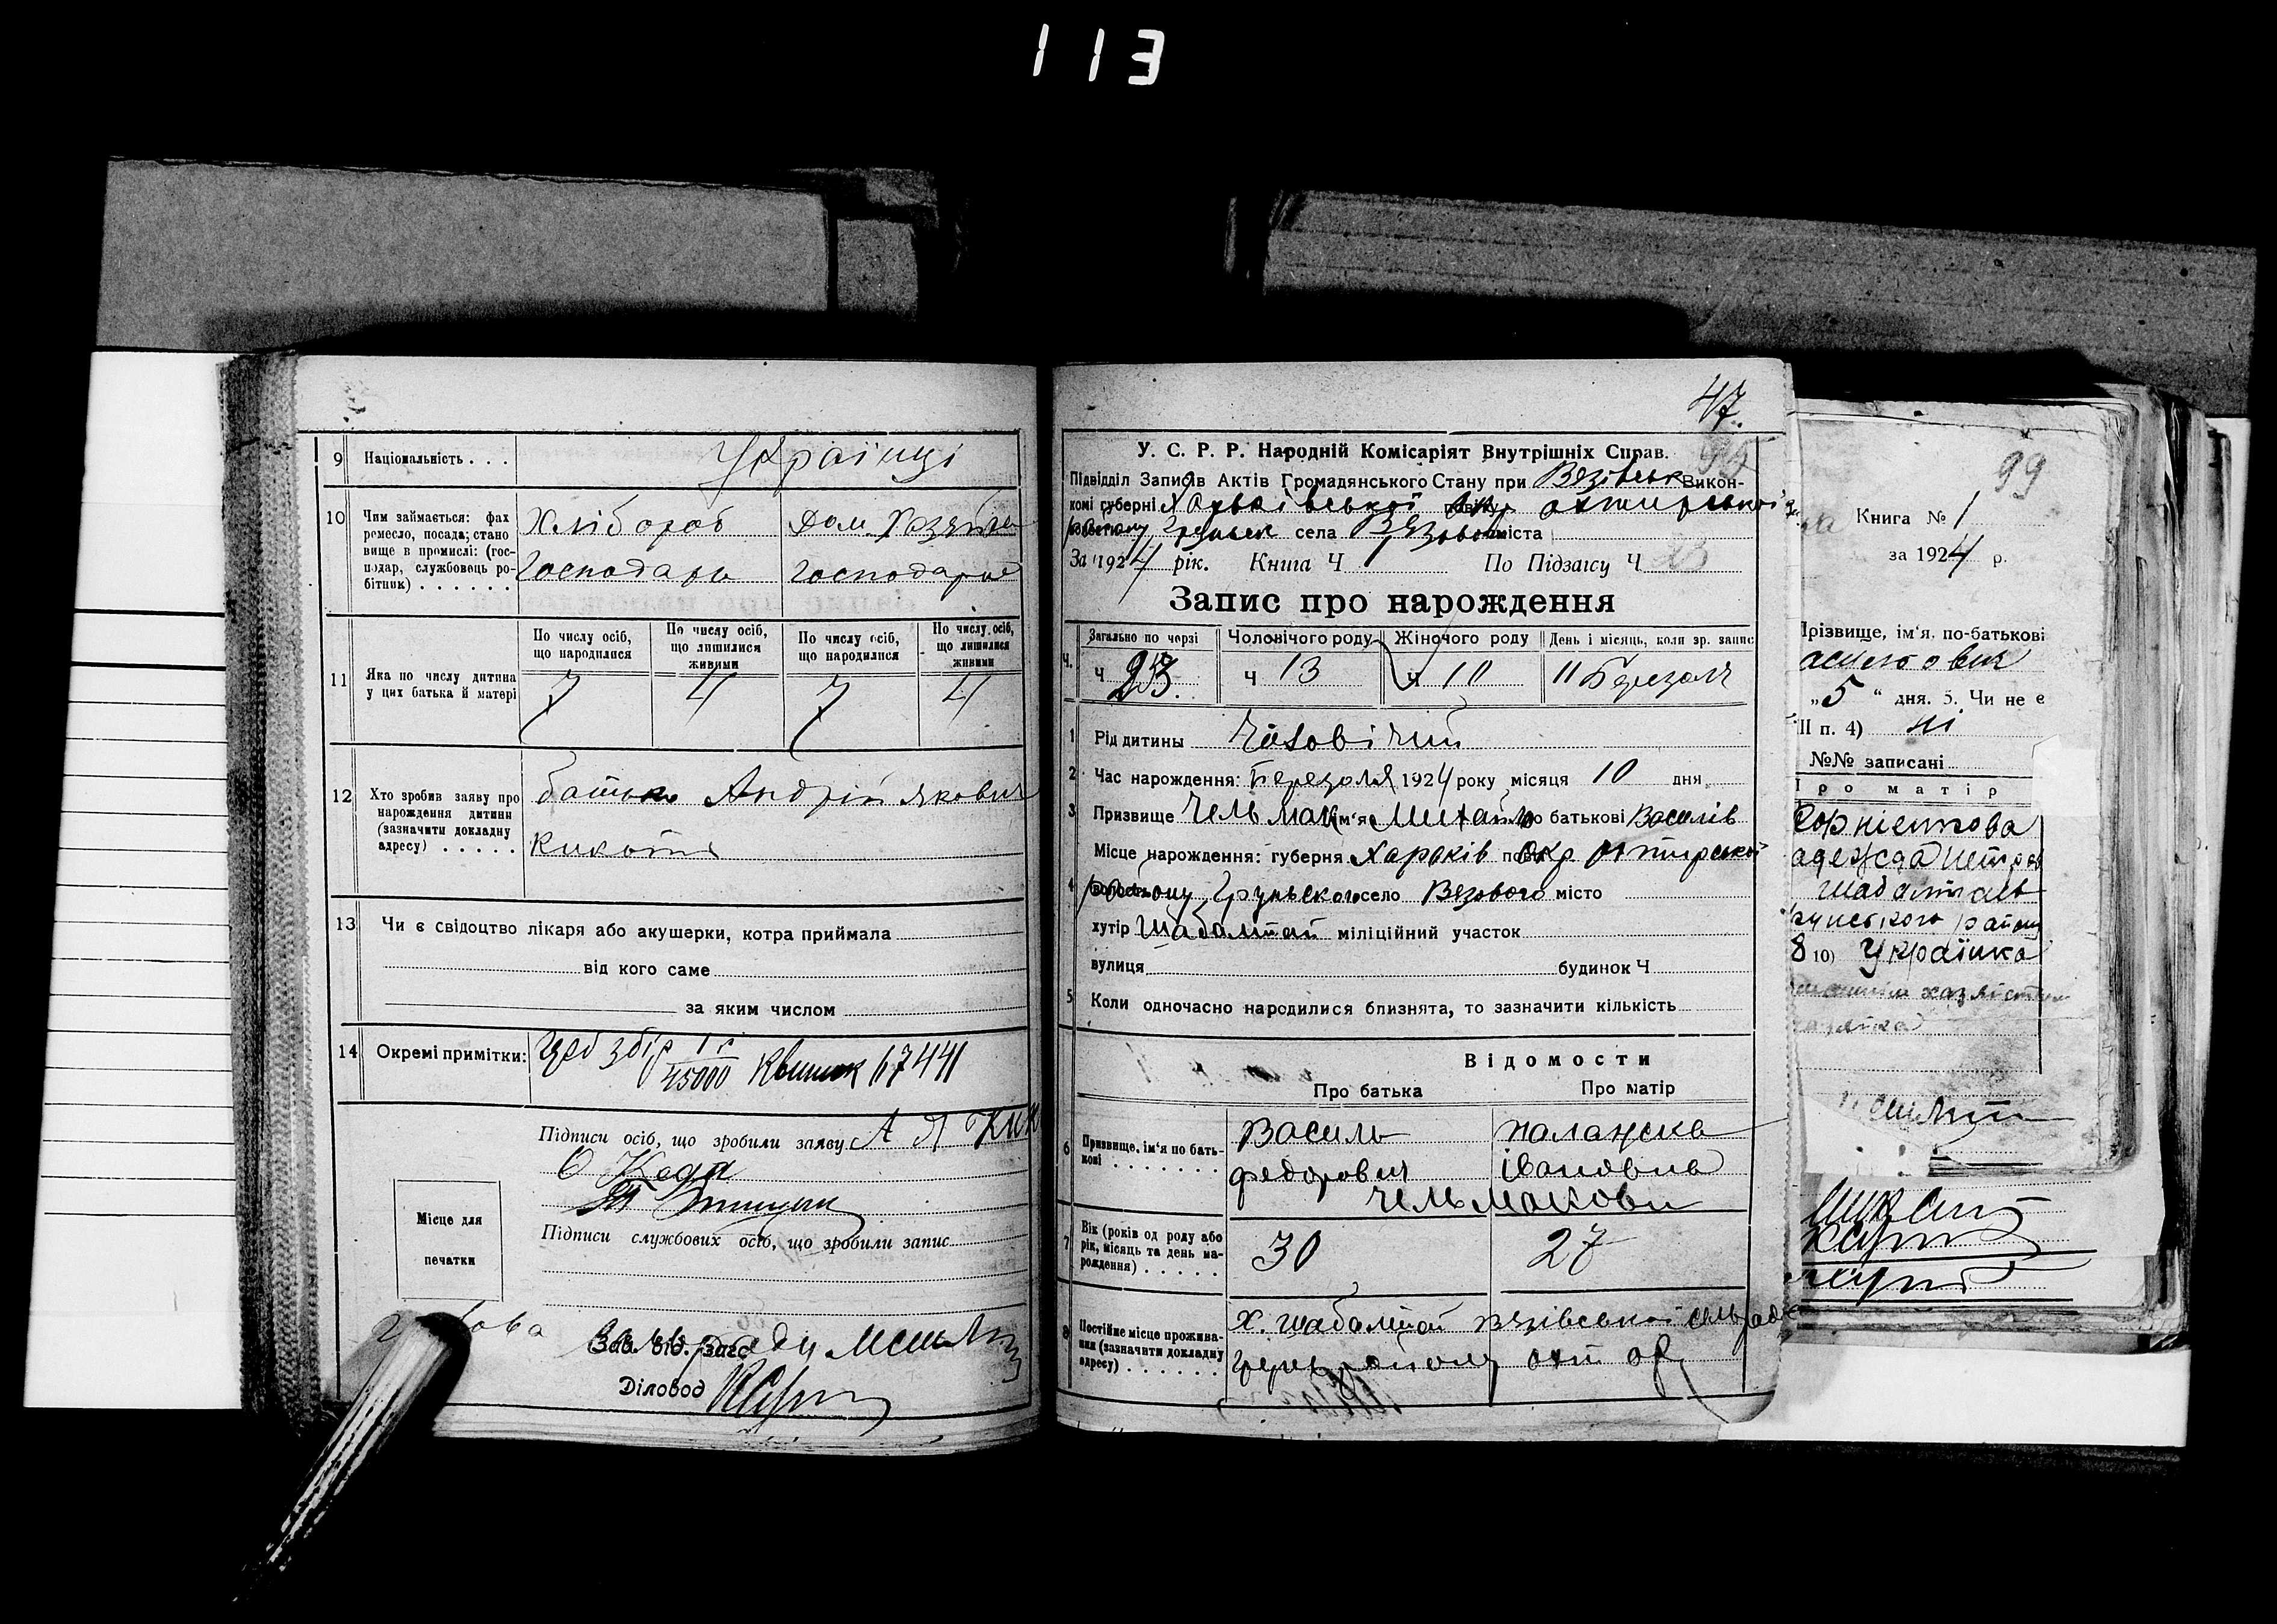 113
9 Національність . . . Українці
10 Чим займається: фах ремесло, посада; становище в промислі: (господар, службовець робітник) . . . . . .
Хлібороб Дом. Хозяйка
Господарь господарка
11 Яка по числу дитина у цих батька й матері
По числу осіб, що народилися По числу осіб, що лишилися живими По числу осіб, що народилися По числу осіб, що лишилися живими
7 4 7 4
12 Хто зробив заяву про нарождення дитини (зазначити докладну адресу) . . . . .
батько Андрій Якович
Кикоть
13 Чи є свідоцтво лікаря або акушерки, котра приймала
від кого саме
за яким числом
14 Окремі примітки: збір 1 р 45000 Квиток 67441
Підписи осіб, що зробили заяву А Я Кик
О Кеда
Підписи службових осіб, що зробили запис
Місце для печатки
Зав. від. загс
Діловод
47
У. С. Р. Р. Народній Комісаріят Внутрішніх Справ.
Підвідділ Записів Актів Громадянського Стану при Вязівськ Викон-
комі губерні Харьківської Окр Охтирської
Груньск села Вязового міста
За 1924 рік. Книга Ч 1 По Підзагсу Ч 23
Запис про нарождення
Загально по черзі Чоловічого роду Жіночого роду День і місяць, коли зр. запис
Ч. Ч 23. Ч 13 Ч 10 11 Березоля
1 Рід дитини Чоловічий
2 Час нарождення: Березоля 1924 року місяця 10 дня
3 Призвище Чельмак ім'я Михайло по батькові Василів
Місце нарождення: губерня Харьків Окр Охтирської
4 району Груньского село Вязового місто
хутір Шабалтаї міліційний участок
вулиця будинок Ч
5 Коли одночасно народилися близнята, то зазначити кількість
Відомости
Про батька Про матір
6 Призвище, ім'я по батькові . . . . . . .
Василь Палажска
федорович Івановна
Чельмакови
7 Вік (років од роду або рік, місяць та день народження) . . . . .
30 27
8 Постійне місце проживання (зазначити докладну адресу) . . . . . .
х. Шабалтаї Вязівської сільради
Грунь району охт окр
99
Книга № 1
за 1924 р.
Прізвище, ім'я, по-батькові
„5 “ дня. 5. Чи не є
ІІ п. 4) ні
№№ записані
Про матір
Корніетова
району
8 10) Українка